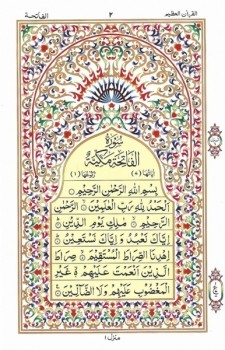 القرآن العظيم ٢ الفاتحة
سُوْرَةُ
الْفَاتِحَةِ مَكِّيَّةٌ
اٰيَاتُهَا (٧) رُكُوْعُهَا (١)
بِسْمِ اللّٰهِ الرَّحْمٰنِ الرَّحِيْمِ
اَلْحَمْدُ لِلّٰهِ رَبِّ الْعٰلَمِيْنَ ۙ الرَّحْمٰنِ
الرَّحِيْمِ ۙ مٰلِكِ يَوْمِ الدِّيْنِ ؕ
اِيَّاكَ نَعْبُدُ وَ اِيَّاكَ نَسْتَعِيْنُ ؕ
اِهْدِنَا الصِّرَاطَ الْمُسْتَقِيْمَ ۙ صِرَاطَ
الَّذِيْنَ اَنْعَمْتَ عَلَيْهِمْ ۙ غَيْرِ
الْمَغْضُوْبِ عَلَيْهِمْ وَ لَا الضَّآلِّيْنَ
منزل ١